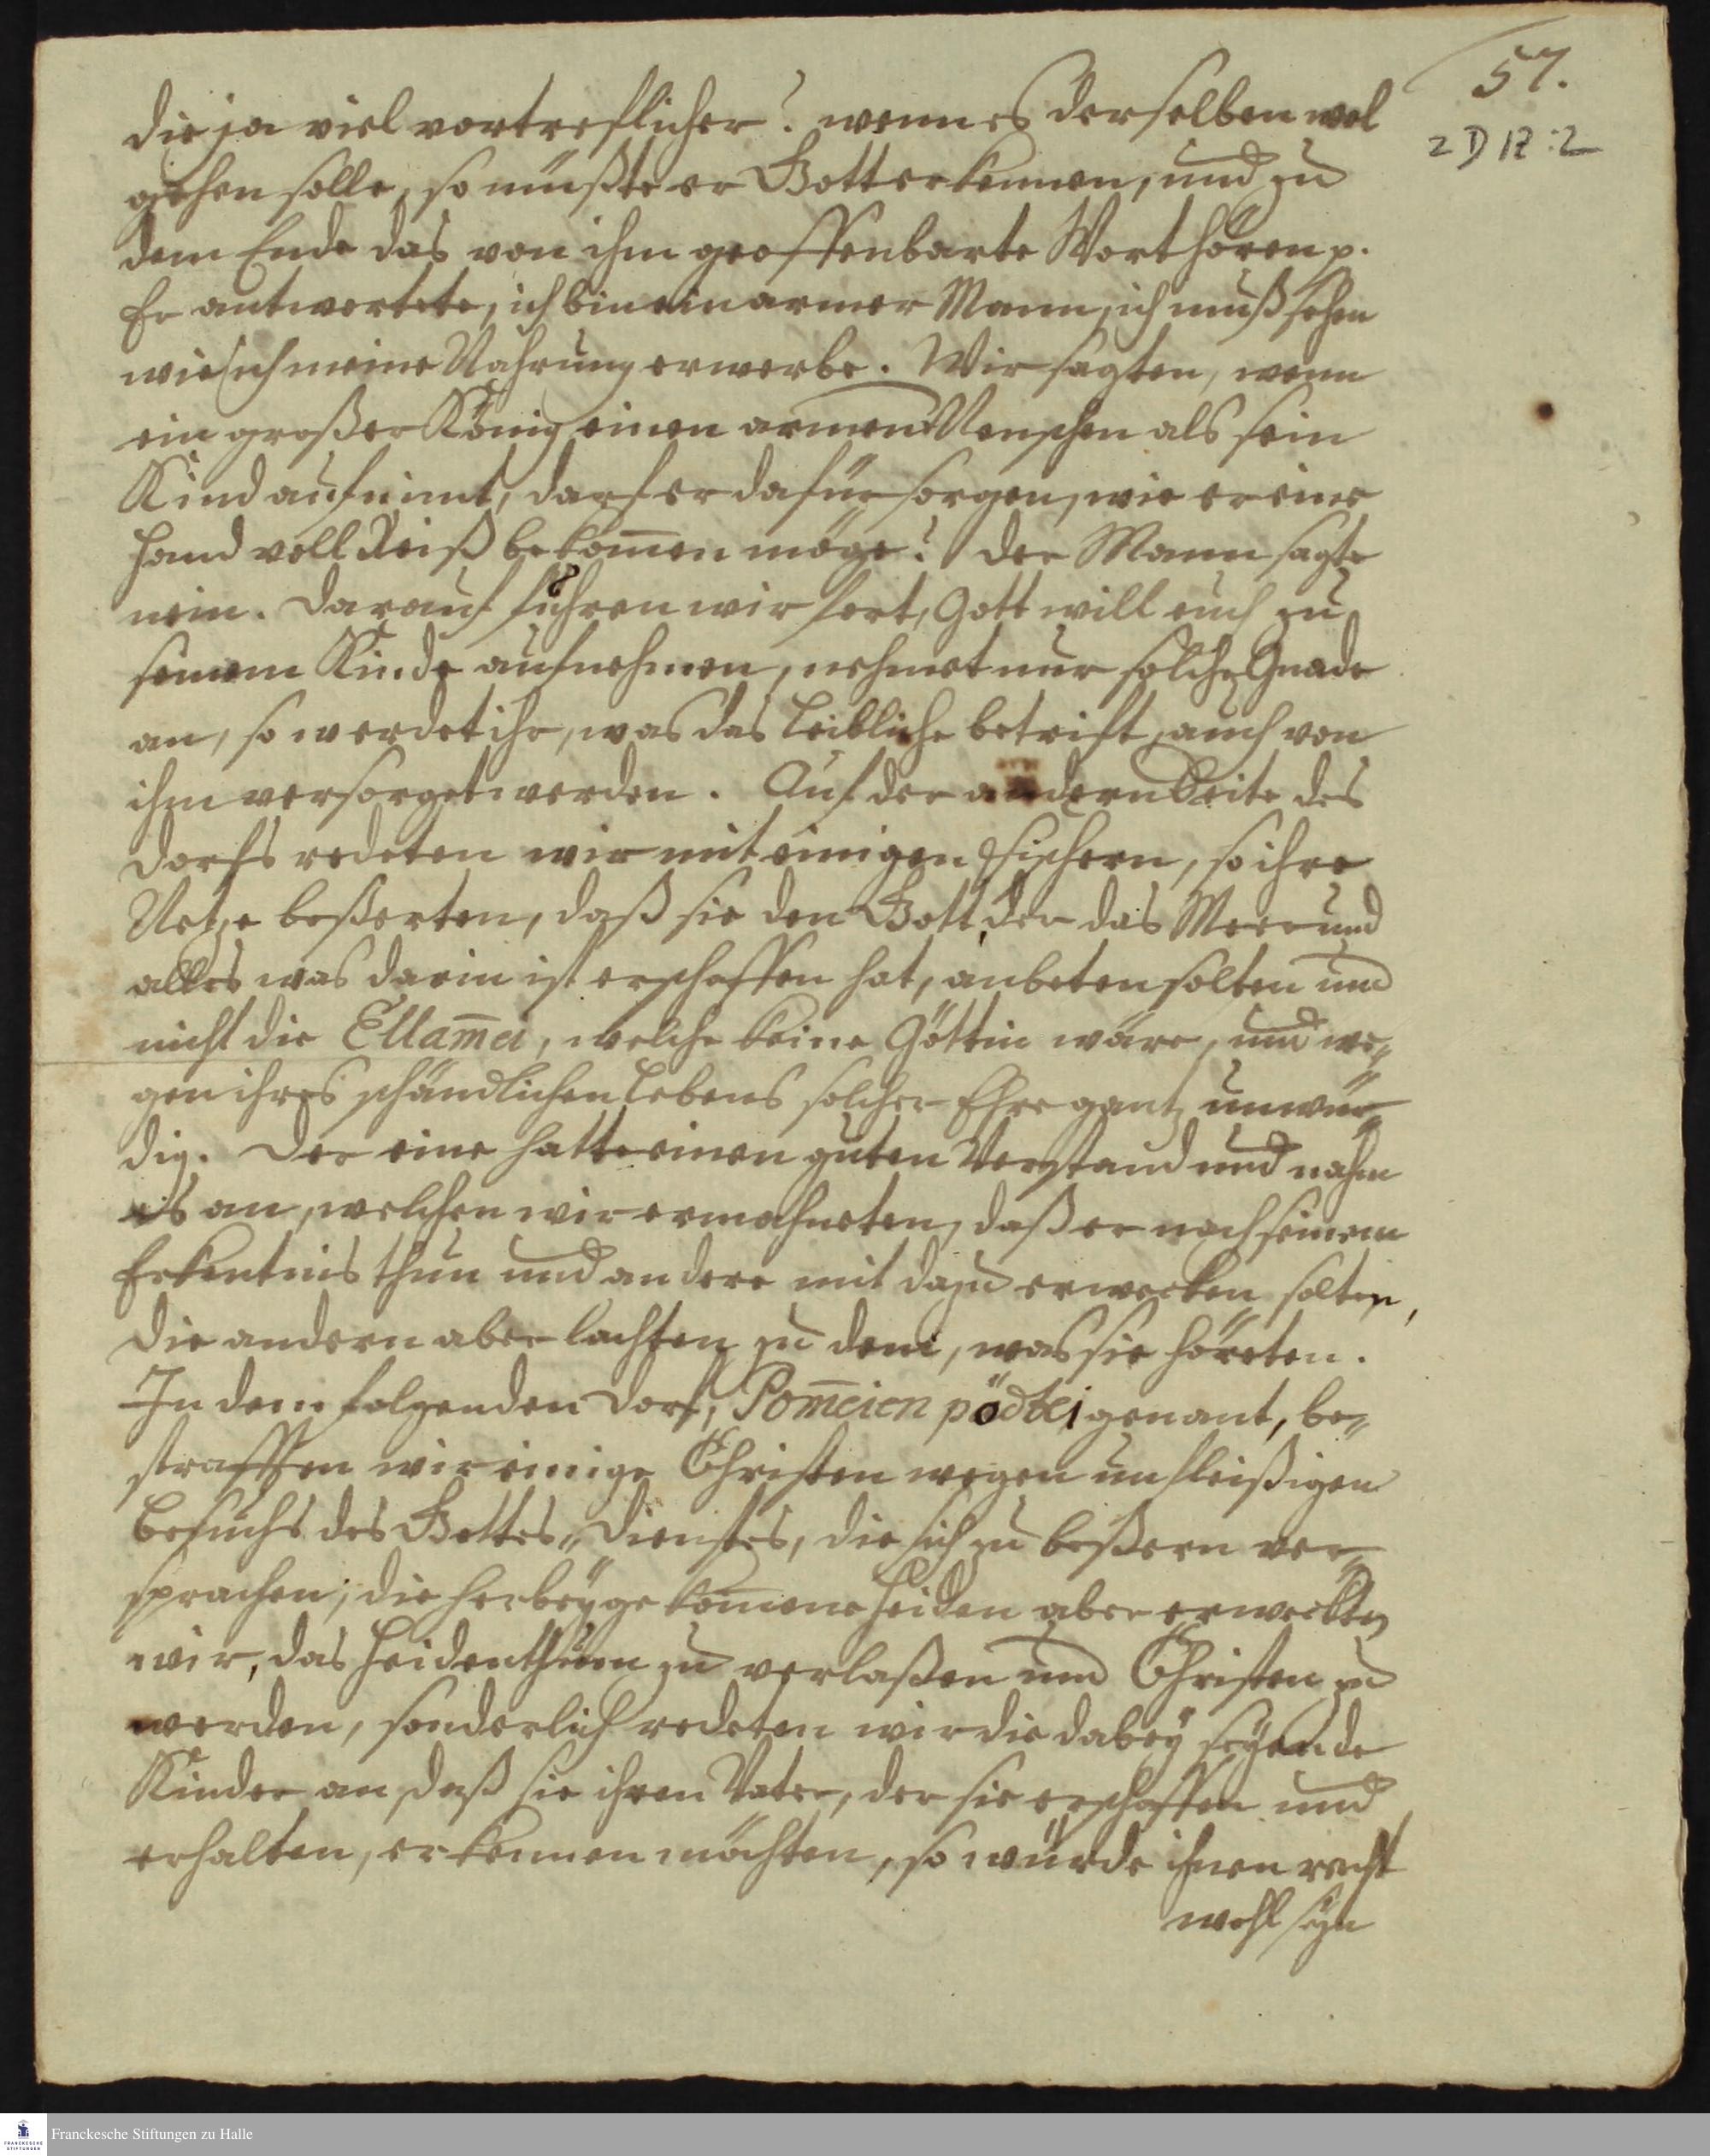 57.
2 D 12 : 2
die ja viel vortreflicher? wenn es derselben wol
gehen solle, so müßte er Gott erkennen, und zu
dem Ende das von ihm geoffenbarte Wort hören p.
Er antwortete, ich bin ein armer Mann, ich muß sehen
wie ich meine Nahrung erwerbe. Wir sagten, wenn
ein großer König einen armen Menschen als sein
Kind aufnimt, darf er dafür sorgen, wie er eine
Hand voll Reiß bekom̅en möge? Der Mann sagte
nein. Darauf fuhren wir fort, Gott will euch zu
seinem Kinde aufnehmen, nehmet nur solche Gnade
an, so werdet ihr, was das Leibliche betrift, auch von
ihm versorget werden. Auf der andern Seite des
Dorfs redeten wir mit einigen Fischern, so ihre
Netze beßerten, daß sie den Gott, der das Meer und
alles was darin ist erschaffen hat, anbeten solten und
nicht die Ellam̅ei, welche keine Göttin wäre, und we„
gen ihres schändlichen Lebens solcher Ehre gantz unwür„
dig. Der eine hatte einen guten Verstand und nahm
es an, welchen wir ermahneten, daß er nach seinem
Erkentnis thun und andere mit dazu erwecken solten,
die andern aber lachten zu dem, was sie höreten.
In dem folgenden Dorf, Pom̅eien pödtei genant, be„
straffen wir einige Christen wegen unfleißigen
Besuchs des Gottes„Dienstes, die sich zu beßern ver„
sprachen; die herbey gekom̅ene Heiden aber erweckten
wir, das Heidenthum zu verlaßen und Christen zu
werden, sonderlich redeten wir die dabey seyende
Kinder an, daß sie ihren Vater, der sie erschaffen und
erhalten, erkennen möchten, so würde ihnen recht
wohl seyn
Franckesche Stiftungen zu Halle